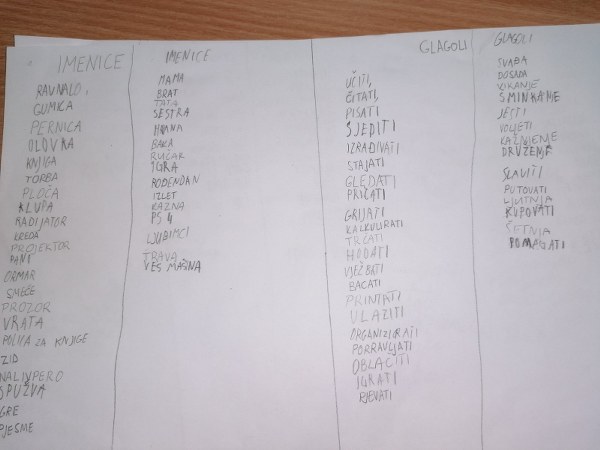 IMENICE
RAVNALO,
GUMICA
PERNICA
OLOVKA
KNJIGA
TORBA
PLOČA
KLUPA
RADIJATOR
KREDA
PROJEKTOR
PANO
ORMAR
SMEĆE
PROZOR
VRATA
POLICA ZA KNJIGE
ZID
NALIVPERO
SPUŽVA
IGRE
PJESME
IMENICE
MAMA
BRAT
TATA
SESTRA
HRANA
BAKA
RUČAK
IGRA
ROĐENDAN
IZLET
KAZNA
PS 4
LJUBIMCI
TRAVA
VEŠ MAŠINA
GLAGOLI
UČITI,
ČITATI,
PISATI
SJEDITI
IZRAĐIVATI
STAJATI
GLEDATI
PRIČATI
GRIJATI
KALKULIRATI
TRČATI
HODATI
VJEŽBATI
BACATI
PRINTATI
ULAZITI
ORGANIZIRATI
POPRAVLJATI
OBLAČITI
IGRATI
PJEVATI
GLAGOLI
SVAĐA
DOSADA
VIKANJE
ŠMINKANJE
JESTI
VOLJETI
KAŽNJENJE
DRUŽENJE
SLAVITI
PUTOVATI
LJUTNJA
KUPOVATI
ŠETNJA
POMAGATI